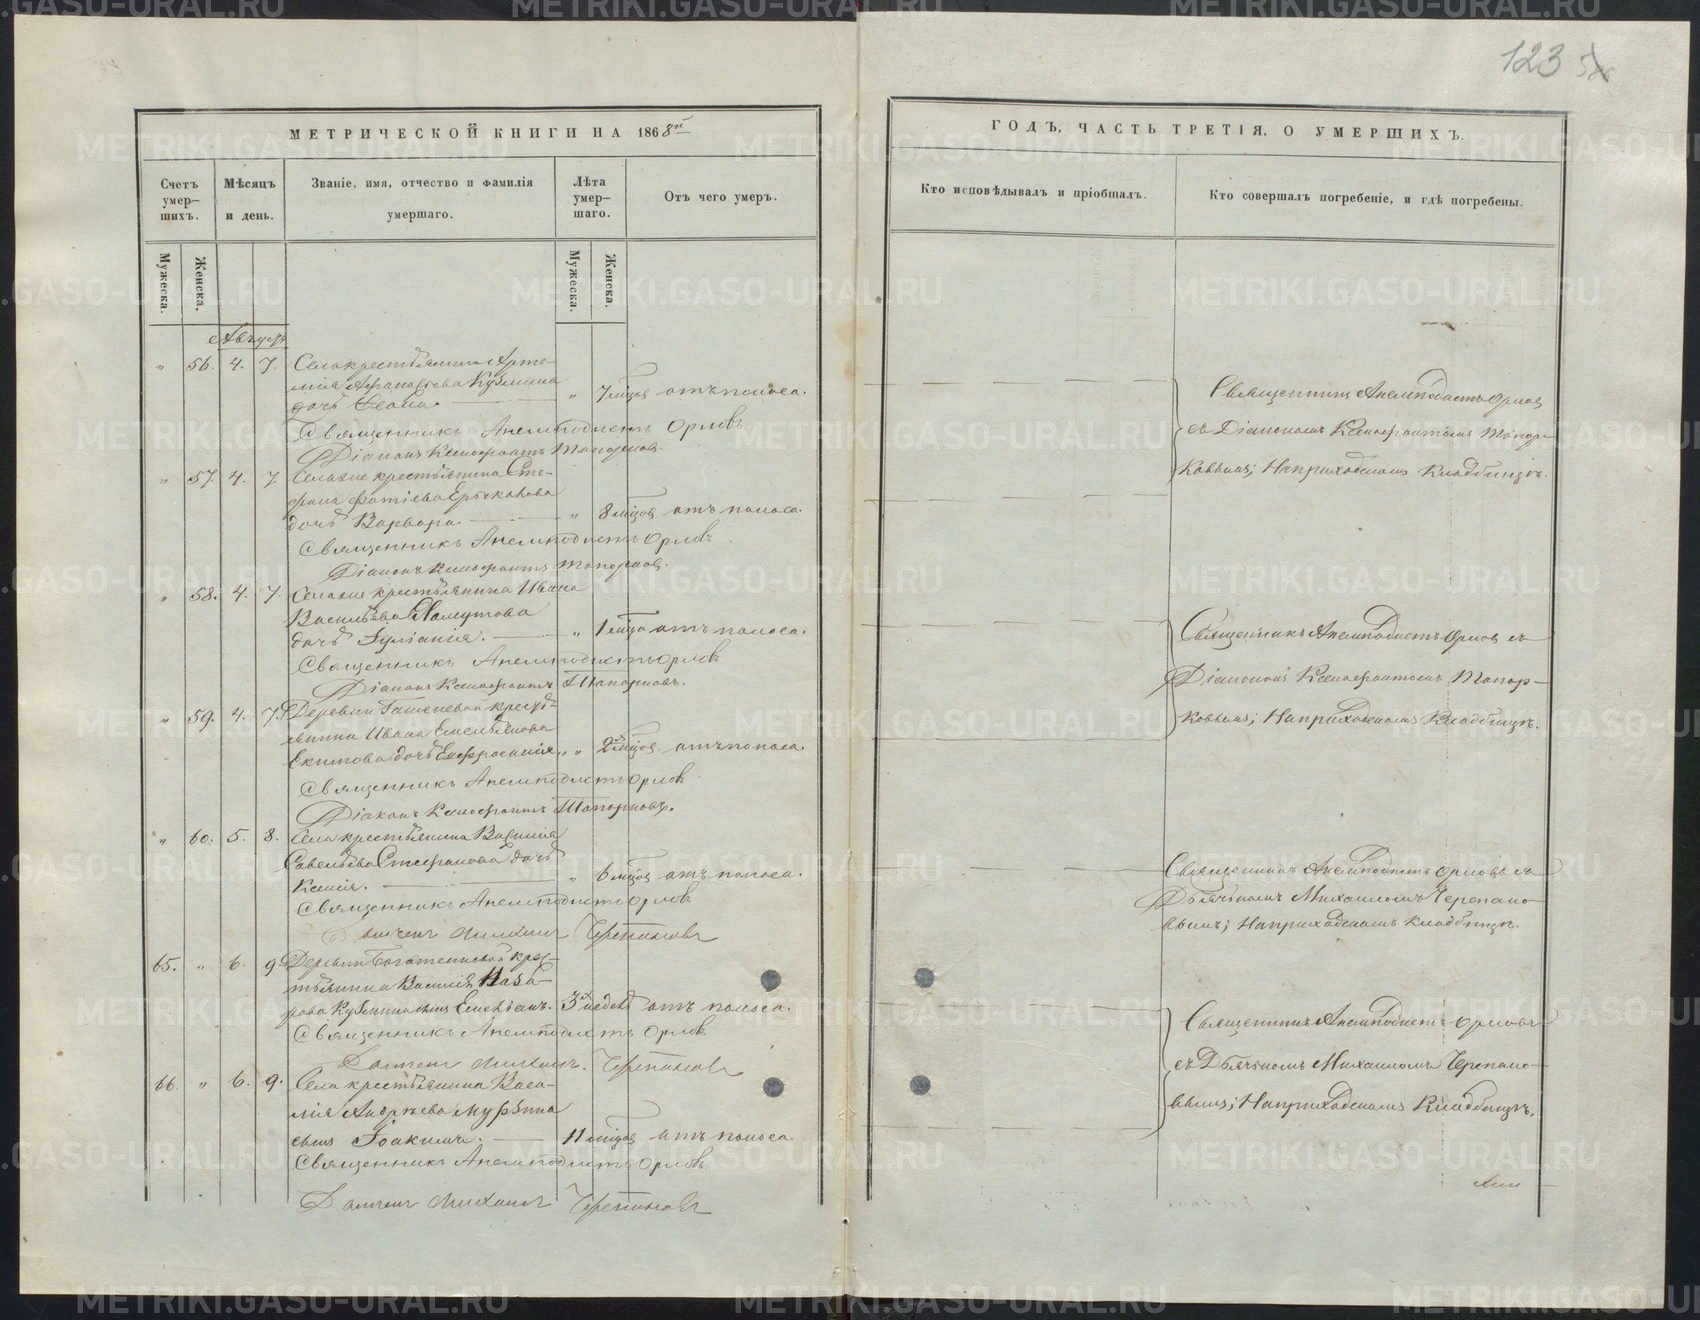 123
МЕТРИЧЕСКОЙ КНИГИ НА 1868й
Счетъ умер-шихъ.
Мѣсяцъ и день.
Званіе, имя, отчество и фамилія умершаго.
Лѣта умер-шаго.
Отъ чего умеръ.
Мужеска.
Женска.
Мужеска.
Женска.
Августъ
" 56. 4. 7. Села крестьянина Арте-
мія Аѳанасьева Кузмина
дочь " 7 мѣсцов отъ поноса.
Священникъ Анемподистъ Орловъ
Діаконъ Ксенофонтъ Топорковъ.
" 57. 4. 7. крестьянина Сте-
фана Фотіева
дочь Варвара. " 8 мѣсцов отъ поноса.
Священникъ Анемподистъ Орловъ
Діаконъ Ксенофонтъ Топорковъ.
" 58. 4. 7. крестьянина Ивана
Васильева
дочь Іуліанія. " 1 мѣсца отъ поноса.
Священникъ Анемподистъ Орловъ
Діаконъ Ксенофонтъ Топорковъ.
" 59. 4. 7. Деревни кресть-
янина Ивана Емельянова
Екимова дочь Евфросинія " 2 мѣсцов отъ поноса
Священникъ Анемподистъ Орловъ
Діаконъ Ксенофонтъ Топорковъ.
" 60. 5. 8. Села крестьянина Василія
Савельева Стефанова дочь
Ксенія. " 6 мѣсцов отъ поноса.
Священникъ Анемподистъ Орловъ
Дьячекъ Михаилъ Черепановъ
65. " 6. 9. Деревни крес-
тьянина Василія Наза-
рова Кузмина сынъ 3 недѣл отъ поноса.
Священникъ Анемподистъ Орловъ
Дьячекъ Михаилъ Черепановъ
66. " 6. 9. Села крестьянина Васи-
лія Андреева Мурзина
сынъ Іоакимъ. 11 мѣсцов отъ поноса.
Священникъ Анемподистъ Орловъ
Дьячекъ Михаилъ Черепановъ
ГОДЪ, ЧАСТЬ ТРЕТІЯ, О УМЕРШИХЪ.
Кто исповѣдывалъ и пріобщалъ.
Кто совершалъ погребеніе, и гдѣ погребены.
Священникъ Анемподистъ Орловъ
съ Діакономъ Ксенофонтомъ Топор-
ковымъ; На приходскомъ Кладбищѣ.
Священникъ Анемподистъ Орловъ съ
Діакономъ Ксенофонтомъ Топор-
ковымъ; На приходскомъ Кладбищѣ.
Священникъ Анемподистъ Орловъ съ
Дьячкомъ Михаиломъ Черепано-
вымъ; На приходскомъ кладбищѣ.
Священникъ Анемподистъ Орловъ
съ Дьячкомъ Михаиломъ Черепано-
вымъ; На приходскомъ Кладбищѣ.
METRIKI.GASO-URAL.RU